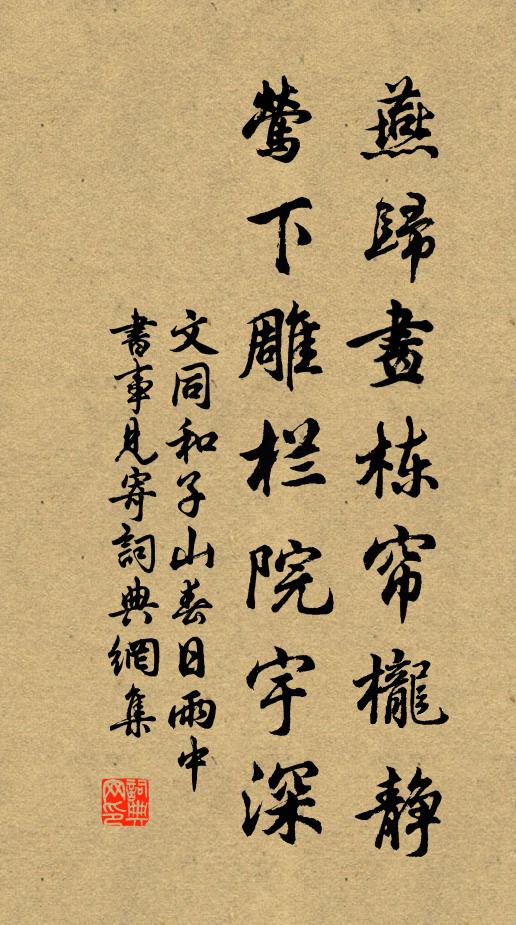 燕歸畫栋帘櫳静
莺下雕栏院宇深
文同和子山春日雨中
書事見寄詞典網集
詞典网印